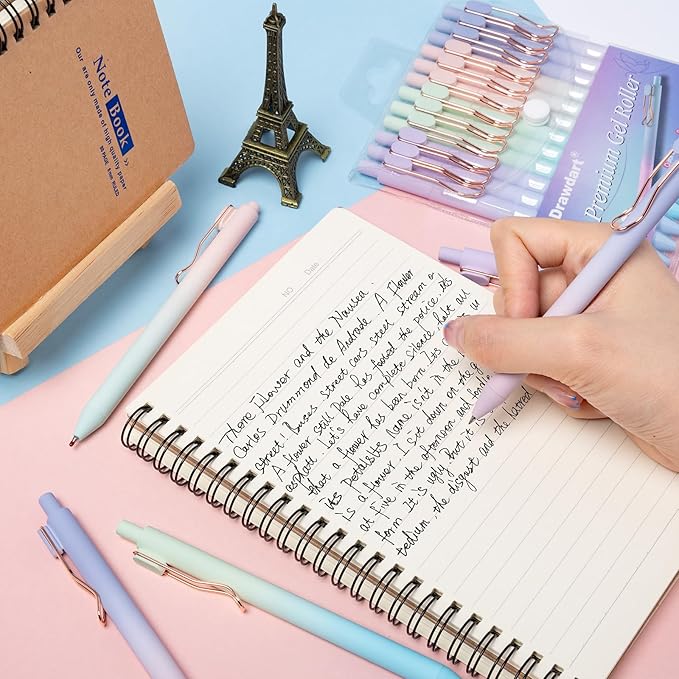 Note Book >>
Our are only made of high quality paper
Drawdart®
Premium Gel Roller
NO Date
There Flower and the Nausea.
Carlos Drummond de Andrade A Flower
street! Buses street cars steel stream o
A flower still Pale has fooled the police.
asPhalt. Let's have complete silence halt all
that a flower has been born. Its
its Petals its name isn't in the
is a flower. I sit down on the g
at five in the afternoon and
form. It is ugly. But it is
tedium, the disgust and the hatred